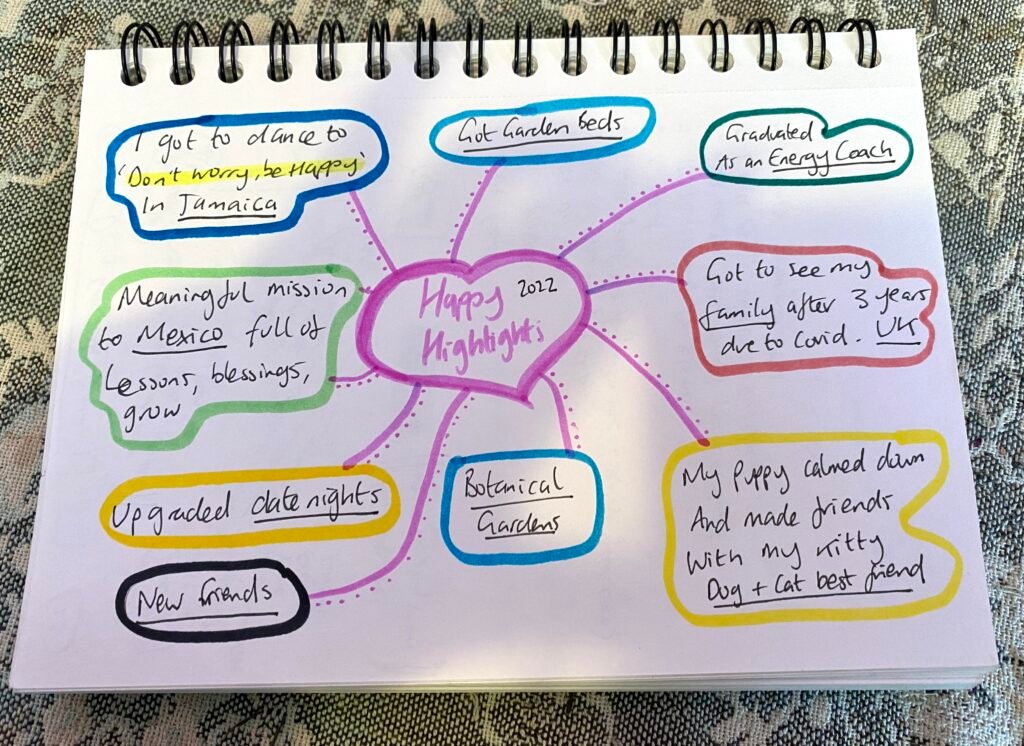 I got to dance to
'Don't worry, be Happy'
In Jamaica
Got Garden Beds
Graduated
As an Energy Coach
Happy 2022
Highlights
Meaningful mission
to Mexico full of
Lessons, blessings,
grow
Got to see my
family after 3 years
due to Covid. UK
Upgraded date nights
Botanical
Gardens
My Puppy calmed down
And made friends
With my kitty
Dog + Cat best friend
New friends